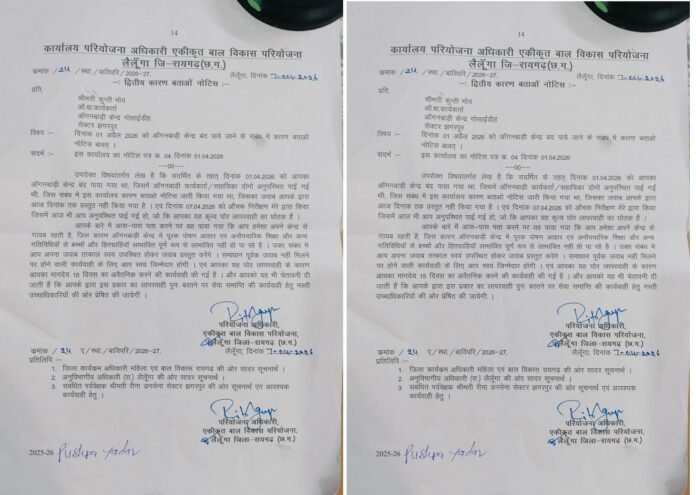 14
कार्यालय परियोजना अधिकारी एकीकृत बाल विकास परियोजना
लैलूँगा जि–रायगढ़(छ.ग.)
क्रमांक /24 /स्था./बाविपरि/2026–27, लैलूँगा, दिनांक 7-04-2026
–: द्वितीय कारण बताओं नोटिस :–
प्रति,
श्रीमती कुन्ती भोय
ऑ.बा.कार्यकर्ता
ऑगनबाड़ी केन्द्र गोसाईडीह
सेक्टर झगरपुर
विषय :– दिनांक 01 अप्रैल 2026 को ऑगनबाड़ी केन्द्र बंद पाये जाने के संबंध में कारण बताओ
नोटिस बाबत् ।
संदर्भ :– इस कार्यालय का नोटिस पत्र क. 04 दिनांक 01.04.2026
—00—
उपरोक्त विषयांतर्गत लेख है कि संदर्भित के तहत् दिनांक 01.04.2026 को आपका
ऑगनबाड़ी केन्द्र बंद पाया गया था, जिसमें ऑगनबाड़ी कार्यकर्ता/सहायिका दोनो अनुपस्थित पाई गई
थी, जिस संबंध में इस कार्यालय कारण बताओं नोटिस जारी किया गया था, जिसका जवाब आपके द्वारा
आज दिनांक तक प्रस्तुत नही किया गया है । एवं दिनांक 07.04.2026 को औचक निरीक्षण मेरे द्वारा किया
जिसमें आज भी आप अनुपस्थित पाई गई हो, जो कि आपका यह कृत्य घोर लापरवाही का घोतक है ।
आपके बारे में आस–पास पता करने पर यह पाया गया कि आप हमेशा अपने केन्द्र से
गायब रहती है, जिस कारण ऑगनबाड़ी केन्द्र में पूरक पोषण आहार एवं अनौपचारिक शिक्षा और अन्य
गतिविधियों से बच्चों और हितग्राहियों लाभांवित पूर्ण रूप से लाभांवित नही हो पा रहे है । उक्त संबंध में
आप अपना जवाब तत्काल स्वयं उपस्थित होकर जवाब प्रस्तुत करेंगे । समाधान पूर्वक जवाब नही मिलने
पर होने वाली कार्यवाही के लिए आप स्वयं जिम्मेदार होंगी । एवं आपका यह घोर लापरवाही के कारण
आपका मानदेय 15 दिवस का अवैतनिक करने की कार्यवाही की गई है । और आपको यह भी चेतावनी दी
जाती है कि आपके द्वारा इस प्रकार का लापरवाही पुनः बरतने पर सेवा समाप्ति की कार्यवाही हेतु नस्ती
उच्चाधिकारियों की ओर प्रेषित की जायेगी ।
परियोजना अधिकारी,
एकीकृत बाल विकास परियोजना,
लैलूँगा जिला–रायगढ़ (छ.ग.)
क्रमांक /24 ए /स्था./बाविपरि/2026–27, लैलूँगा, दिनांक 7-04-2026
प्रतिलिपि :–
1. जिला कार्यक्रम अधिकारी महिला एवं बाल विकास रायगढ़ की ओर सादर सूचनार्थ ।
2. अनुविभागीय अधिकारी (रा.) लैलूँगा की ओर सादर सूचनार्थ ।
3. संबंधित पर्यवेक्षक श्रीमती रीना डनसेना सेक्टर झगरपुर की ओर सूचनार्थ एवं आवश्यक
कार्यवाही हेतु ।
परियोजना अधिकारी
एकीकृत बाल विकास परियोजना,
लैलूँगा जिला–रायगढ़(छ.ग.)
2025-26 Pushpa Yadav
14
कार्यालय परियोजना अधिकारी एकीकृत बाल विकास परियोजना
लैलूँगा जि–रायगढ़(छ.ग.)
क्रमांक /24 /स्था./बाविपरि/2026–27, लैलूँगा, दिनांक 7-04-2026
–: द्वितीय कारण बताओं नोटिस :–
प्रति,
श्रीमती कुन्ती भोय
ऑ.बा.कार्यकर्ता
ऑगनबाड़ी केन्द्र गोसाईडीह
सेक्टर झगरपुर
विषय :– दिनांक 01 अप्रैल 2026 को ऑगनबाड़ी केन्द्र बंद पाये जाने के संबंध में कारण बताओ
नोटिस बाबत् ।
संदर्भ :– इस कार्यालय का नोटिस पत्र क. 04 दिनांक 01.04.2026
—00—
उपरोक्त विषयांतर्गत लेख है कि संदर्भित के तहत् दिनांक 01.04.2026 को आपका
ऑगनबाड़ी केन्द्र बंद पाया गया था, जिसमें ऑगनबाड़ी कार्यकर्ता/सहायिका दोनो अनुपस्थित पाई गई
थी, जिस संबंध में इस कार्यालय कारण बताओं नोटिस जारी किया गया था, जिसका जवाब आपके द्वारा
आज दिनांक तक प्रस्तुत नही किया गया है । एवं दिनांक 07.04.2026 को औचक निरीक्षण मेरे द्वारा किया
जिसमें आज भी आप अनुपस्थित पाई गई हो, जो कि आपका यह कृत्य घोर लापरवाही का घोतक है ।
आपके बारे में आस–पास पता करने पर यह पाया गया कि आप हमेशा अपने केन्द्र से
गायब रहती है, जिस कारण ऑगनबाड़ी केन्द्र में पूरक पोषण आहार एवं अनौपचारिक शिक्षा और अन्य
गतिविधियों से बच्चों और हितग्राहियों लाभांवित पूर्ण रूप से लाभांवित नही हो पा रहे है । उक्त संबंध में
आप अपना जवाब तत्काल स्वयं उपस्थित होकर जवाब प्रस्तुत करेंगे । समाधान पूर्वक जवाब नही मिलने
पर होने वाली कार्यवाही के लिए आप स्वयं जिम्मेदार होंगी । एवं आपका यह घोर लापरवाही के कारण
आपका मानदेय 15 दिवस का अवैतनिक करने की कार्यवाही की गई है । और आपको यह भी चेतावनी दी
जाती है कि आपके द्वारा इस प्रकार का लापरवाही पुनः बरतने पर सेवा समाप्ति की कार्यवाही हेतु नस्ती
उच्चाधिकारियों की ओर प्रेषित की जायेगी ।
परियोजना अधिकारी,
एकीकृत बाल विकास परियोजना,
लैलूँगा जिला–रायगढ़ (छ.ग.)
क्रमांक /24 ए /स्था./बाविपरि/2026–27, लैलूँगा, दिनांक 7-04-2026
प्रतिलिपि :–
1. जिला कार्यक्रम अधिकारी महिला एवं बाल विकास रायगढ़ की ओर सादर सूचनार्थ ।
2. अनुविभागीय अधिकारी (रा.) लैलूँगा की ओर सादर सूचनार्थ ।
3. संबंधित पर्यवेक्षक श्रीमती रीना डनसेना सेक्टर झगरपुर की ओर सूचनार्थ एवं आवश्यक
कार्यवाही हेतु ।
परियोजना अधिकारी
एकीकृत बाल विकास परियोजना,
लैलूँगा जिला–रायगढ़(छ.ग.)
2025-26 Pushpa Yadav